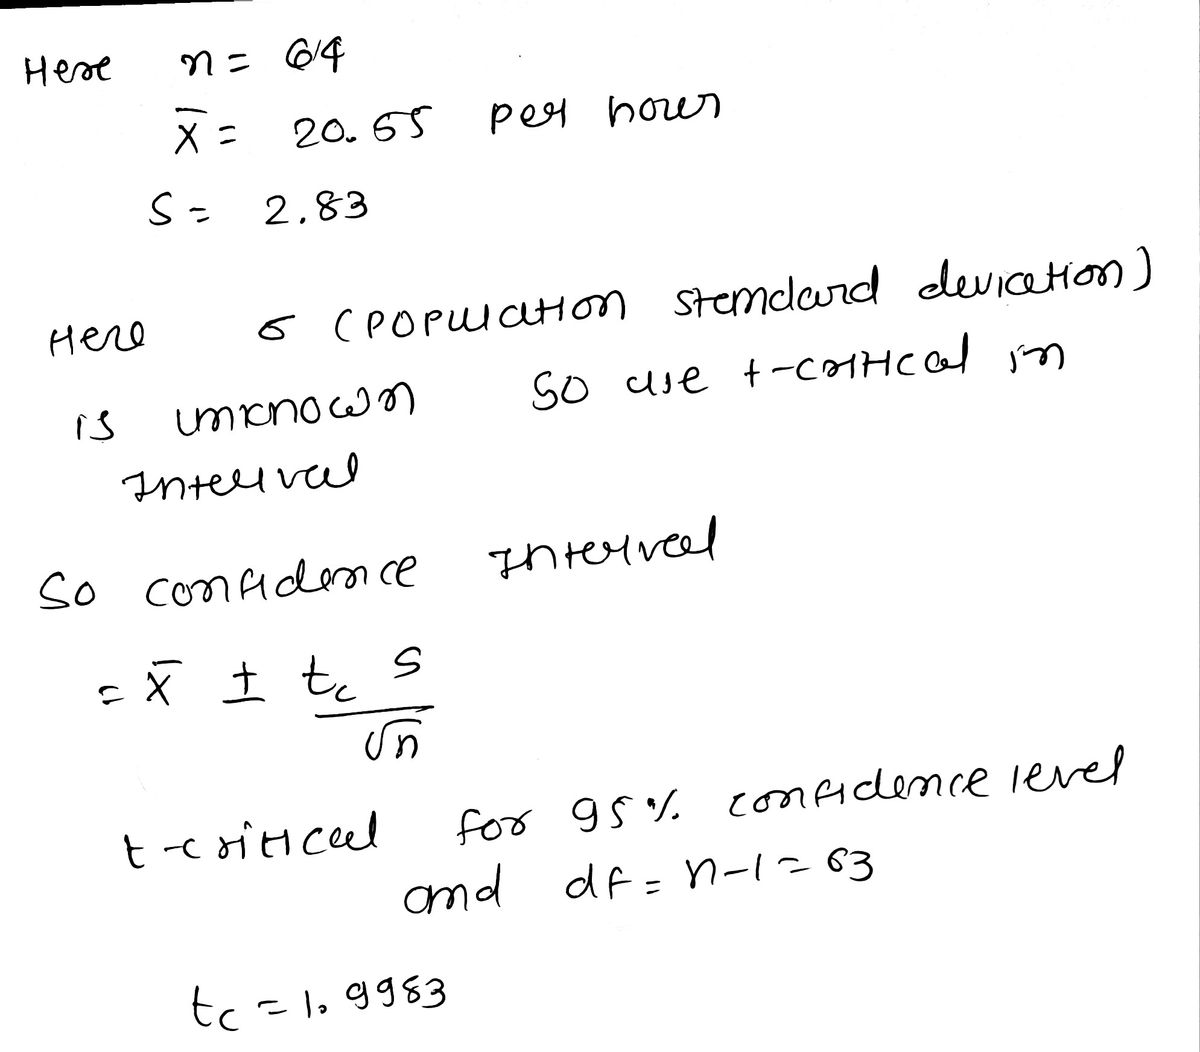 Here n = 64
x̄ = 20.65 per hour
S = 2.83
Here σ (population standard deviation)
is unknown So use t-critical in
Interval
So confidence Interval
= x̄ ± tc S
√n
t-critical for 95% confidence level
and df = n-1 = 63
tc = 1.9983